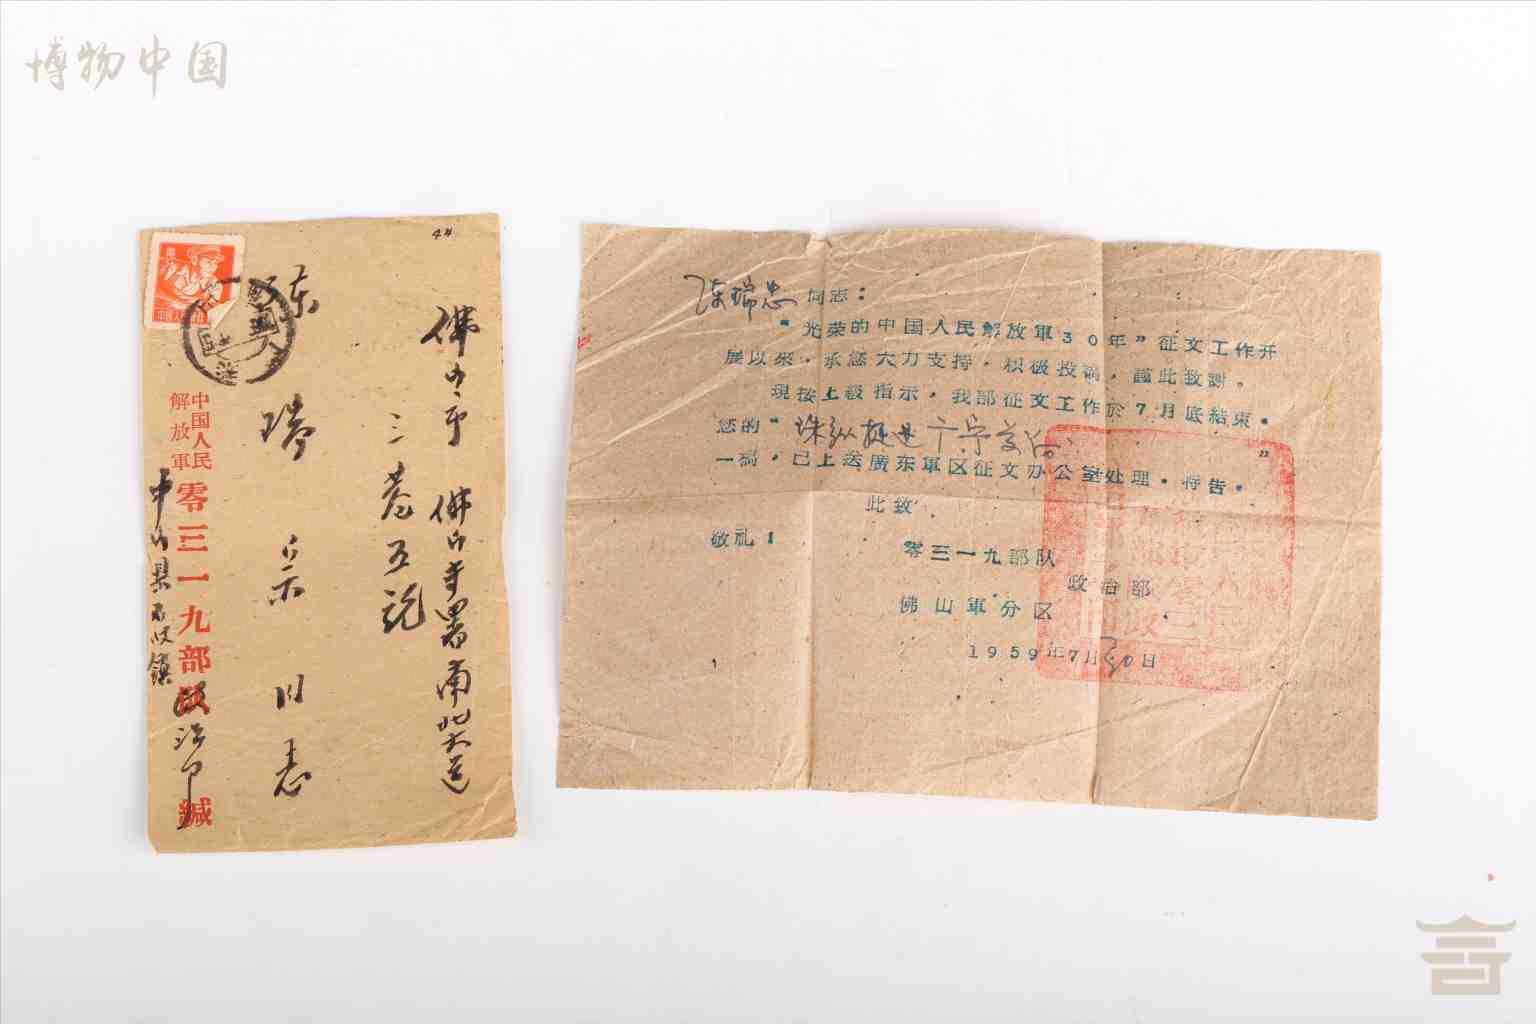 博物中国
佛山市 佛山专署南北大道
三巷五号
陈瑞 同志
中国人民
解放軍
零三一九部队
缄
中山县石岐镇
政治部
陈瑞忠 同志：
“光荣的中国人民解放軍30年”征文工作开
展以來，承您大力支持，积极投稿，謹此致謝。
現按上級指示，我部征文工作於7月底結束。
您的“珠纵挺进 ”
一稿，已上送廣东軍区征文办公室处理。特告。
此致
敬礼！
零三一九部队
政治部
佛山軍分区
1959年7月30日